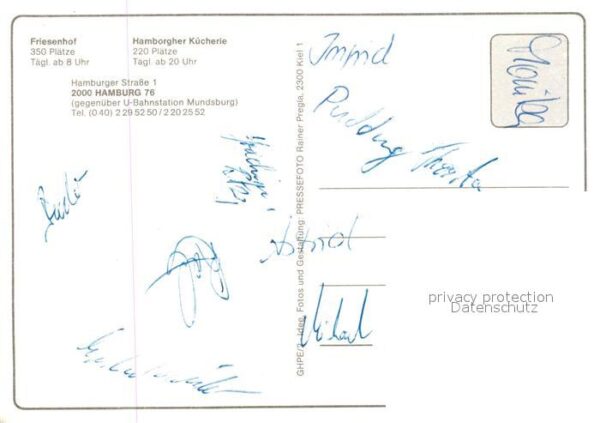 Friesenhof
350 Plätze
Tägl. ab 8 Uhr
Hamborgher Kücherie
220 Plätze
Tägl. ab 20 Uhr
Hamburger Straße 1
2000 HAMBURG 76
(gegenüber U-Bahnstation Mundsburg)
Tel. (0 40) 2 29 52 50 / 2 20 25 52
GHPE/2 Idee, Fotos und Gestaltung: PRESSEFOTO Rainer Pregla, 2300 Kiel 1
Monika
Pudding
Thorsten
Astrid
Michael
privacy protection
Datenschutz